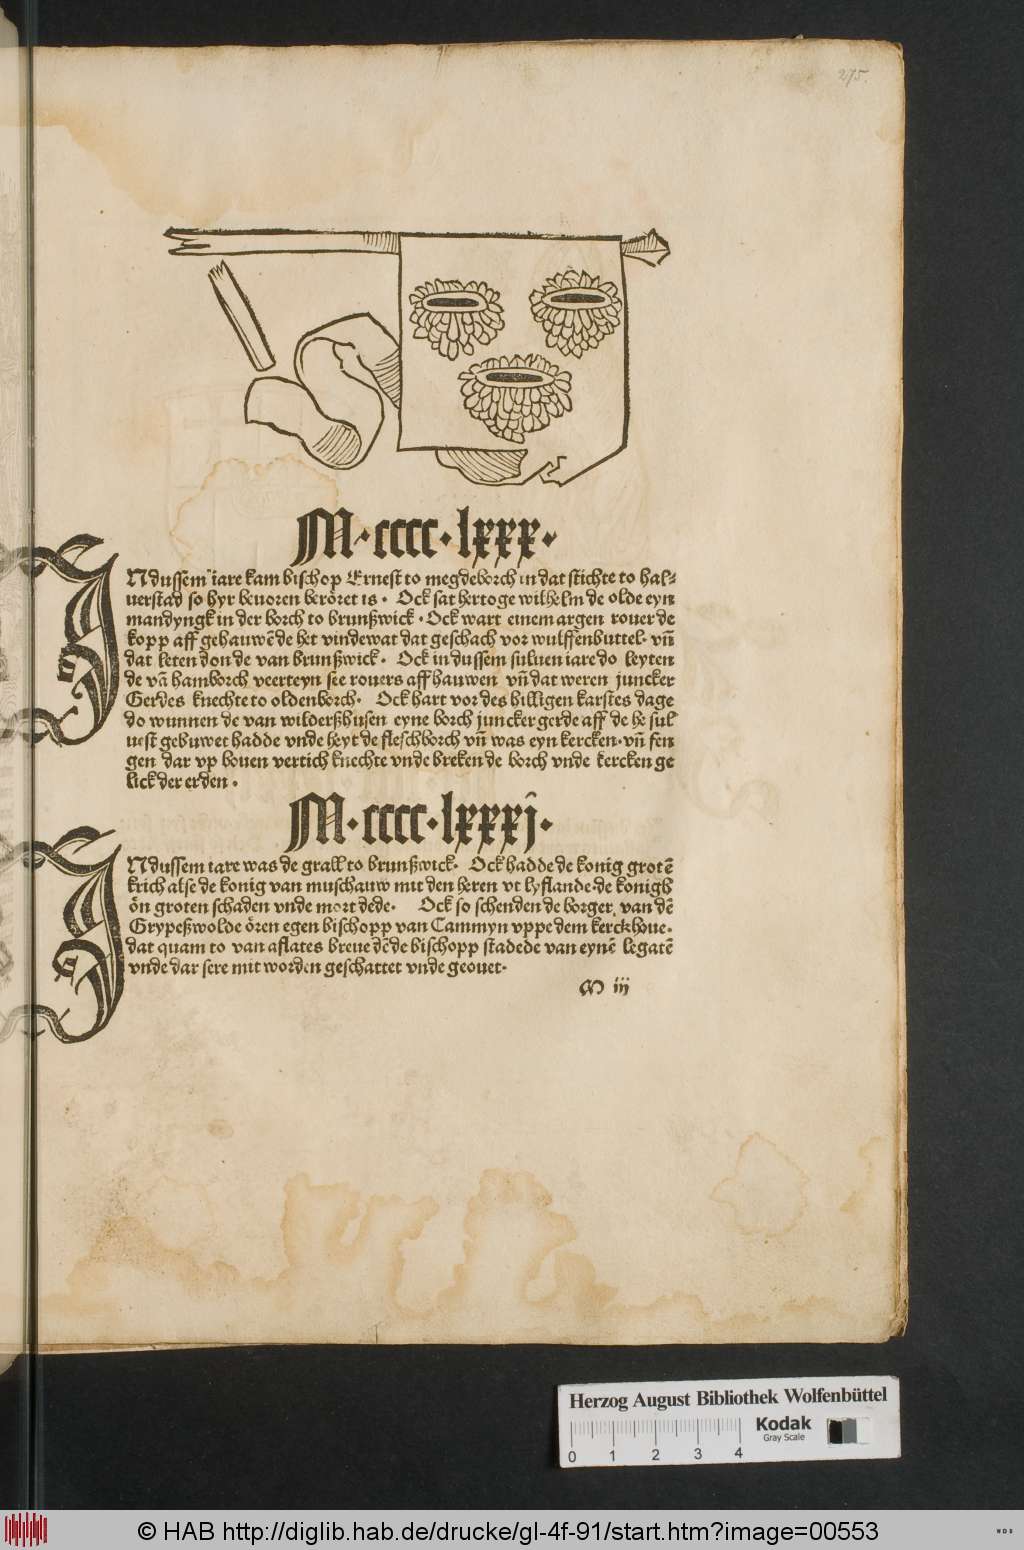 275.
M·cccc·lxxx·
INdussem iare kam bischop Ernest to megdeborch in dat stichte to hal⸗
uerstad so hyr beuoren beröret is · Ock sat hertoge wilhelm de olde eyn
mandyngk in der borch to brunßwick · Ock wart einem argen rouer de
kopp aff gehauwē de het vindewat dat geschach vor wulffenbuttel· vñ
dat leten don de van brunßwick · Ock in dussem suluen iare do leyten
de vā hamborch veerteyn see rouers aff hauwen vñ dat weren juncker
Gerdes knechte to oldenborch· Ock hart vor des hilligen karstes dage
do wunnen de van wilderßhusen eyne borch juncker gerde aff de he sul
uest gebuwet hadde vnde heyt de fleschborch vñ was eyn kercken·vñ fen
gen dar vp bouen vertich knechte vnde breken de borch vnde kercken ge
lick der erden ·
M·cccc·lxxxj·
INdussem iare was de grall to brunßwick· Ock hadde de konig grotē
krich alse de konig van muschauw mit den heren vt lyflande·de konigh
ön groten schaden vnde mort dede· Ock so schenden de borger van dē
Grypeßwolde ören egen bischopp van Cammyn vppe dem kerckhoue·
dat quam to van aflates breue dē de bischopp stadede van eynē legatē
vnde dar sere mit worden geschattet vnde geouet·
M iij
Herzog August Bibliothek Wolfenbüttel
Kodak
Gray Scale
0 1 2 3 4
© HAB http://diglib.hab.de/drucke/gl-4f-91/start.htm?image=00553